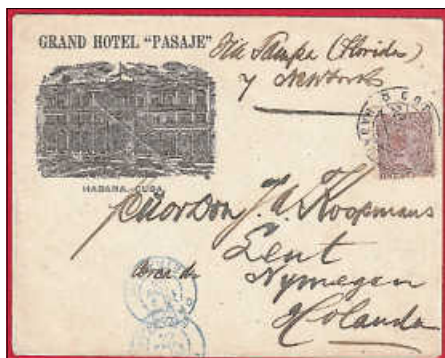 GRAND HOTEL "PASAJE"
Via Tampa (Florida)
y Newyork
HABANA, CUBA.
J. A. Koopmans
Lent
cerca de
Nymegen
Holanda